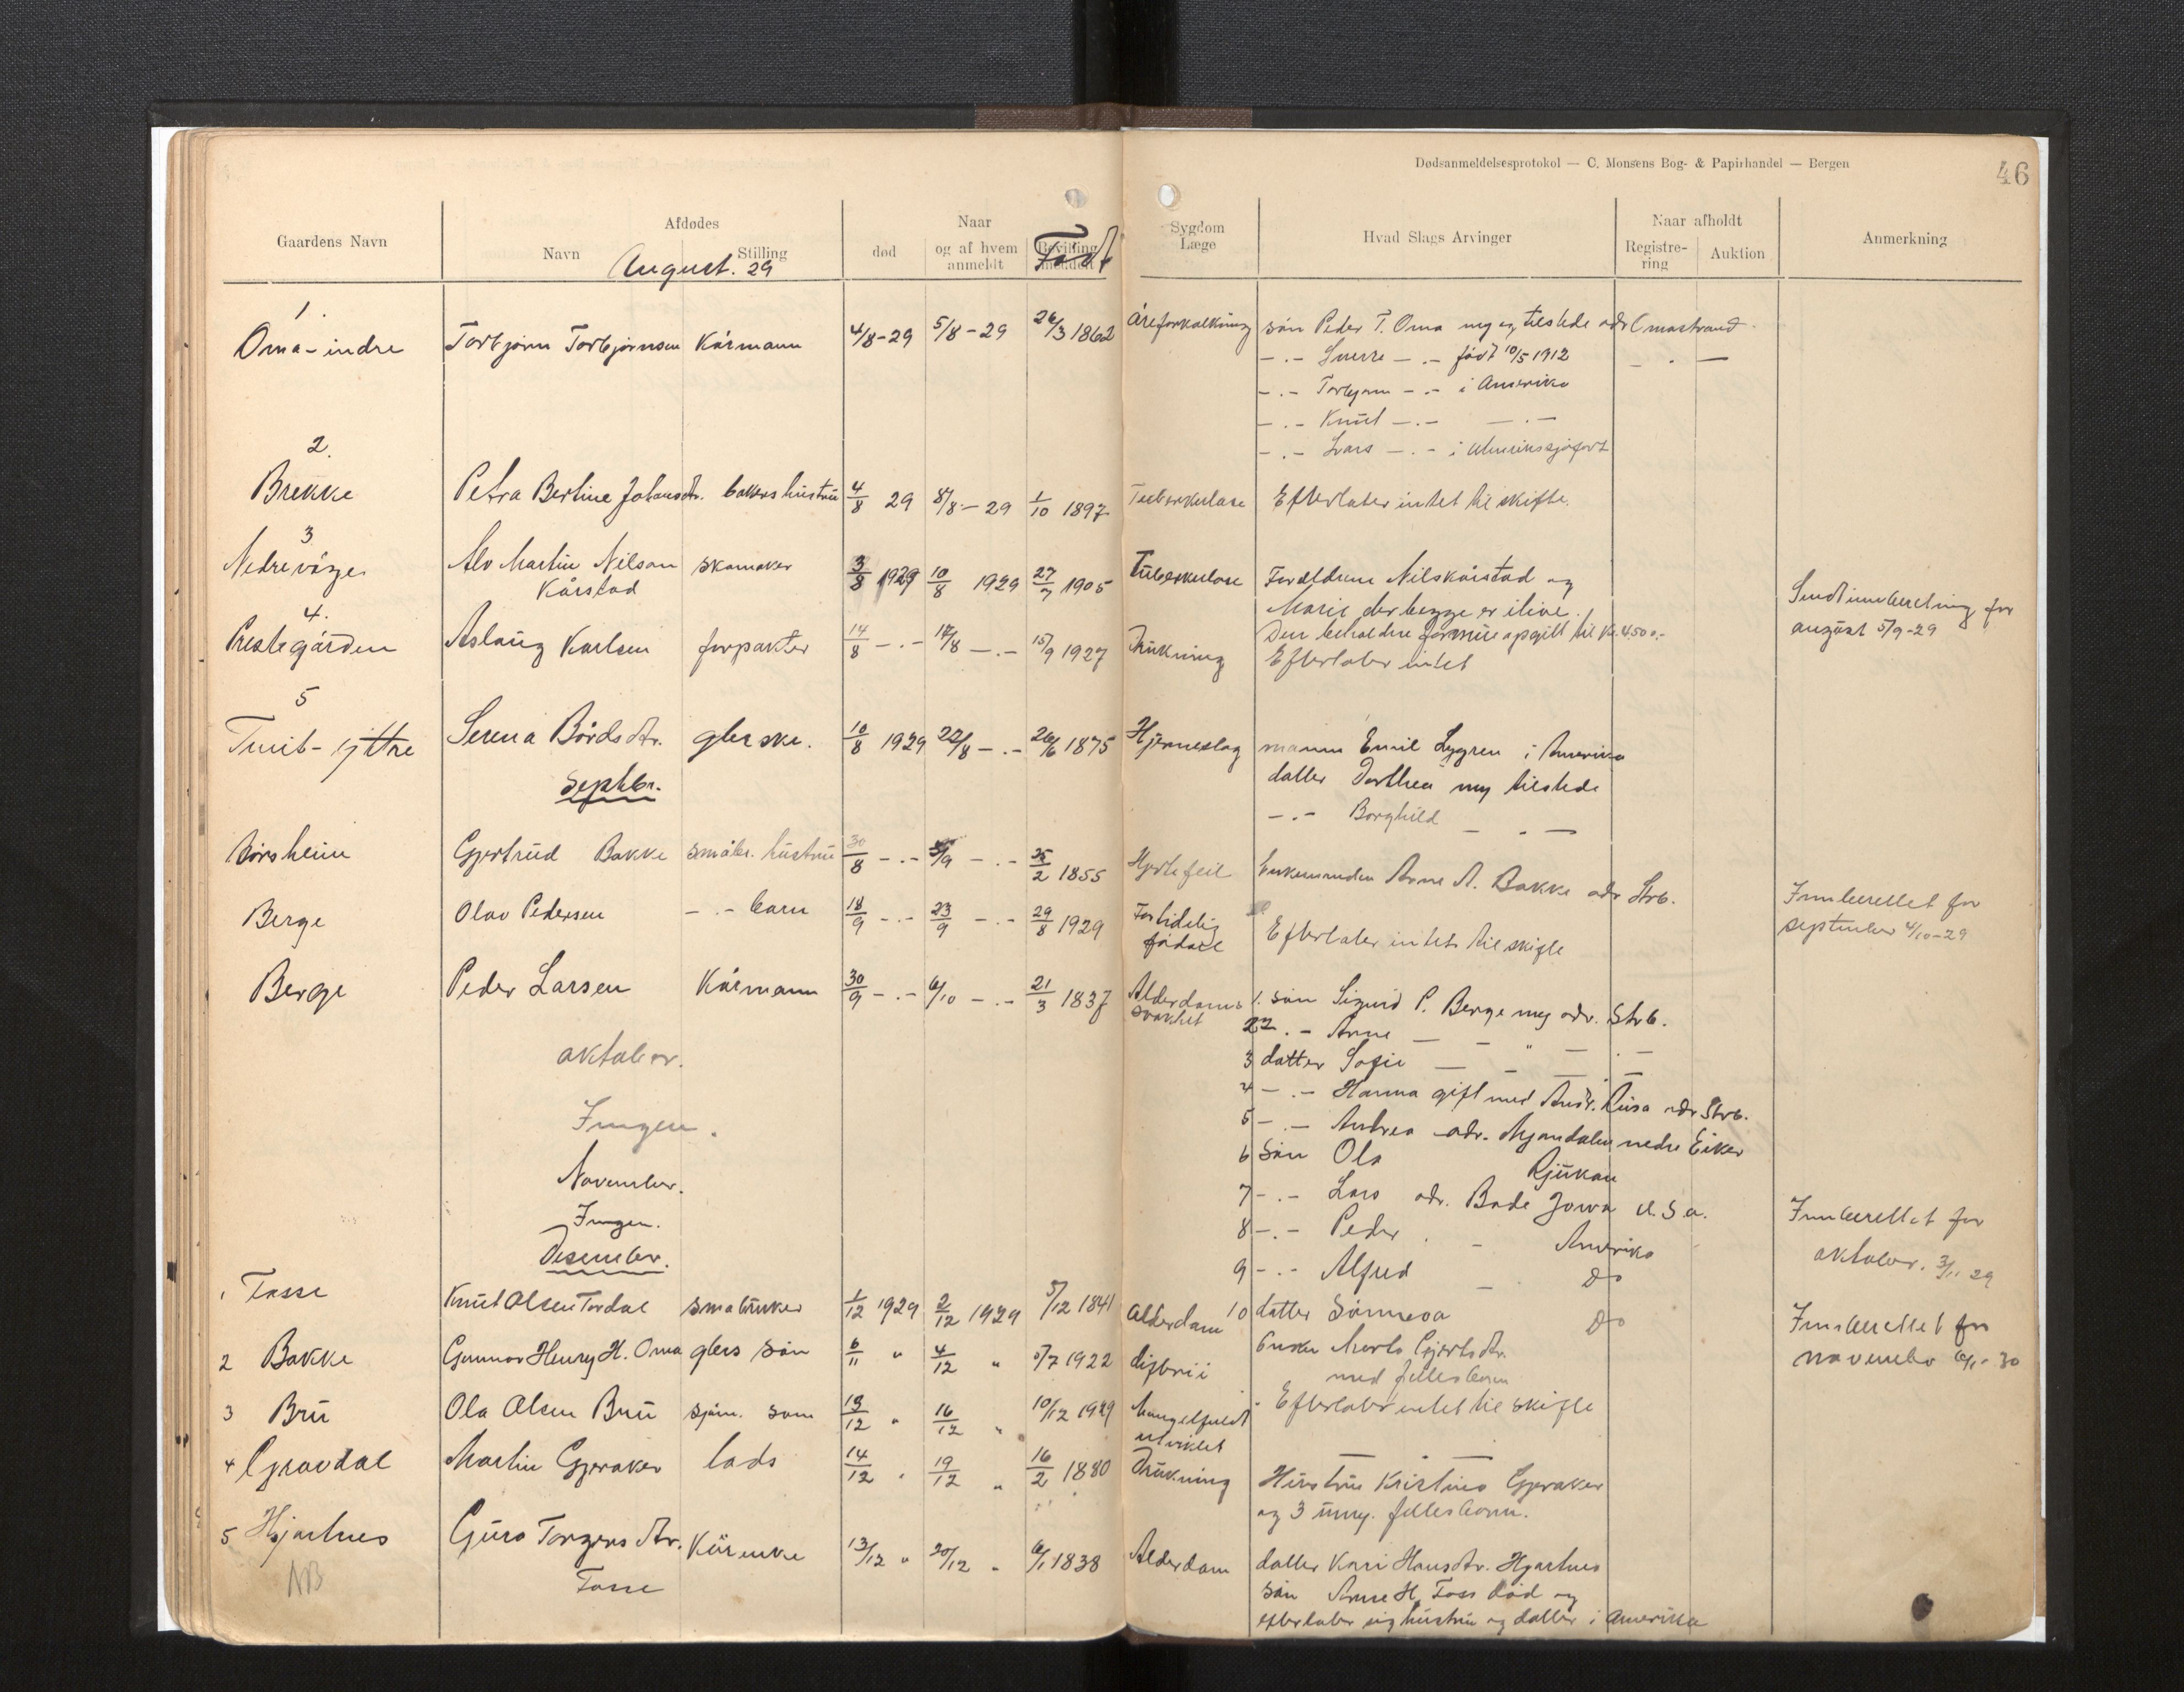 Dødsanmeldelsesprotokol — C. Monsens Bog- & Papirhandel — Bergen
46
Gaardens Navn
Afdødes
Navn
Stilling
August. 29
Naar
død
og af hvem anmeldt
Født
Sygdom
Læge
Hvad Slags Arvinger
Naar afholdt
Registre-
ring
Auktion
Anmerkning
1.
Oma-indre Torbjørn Torbjørnsen Kårmann 4/8-29 5/8-29 26/3 1862 åreforkalkning søn Peder T. Oma myg tilstede adr Omastrand.
-.- Sverre -.- født 10/5 1912 - . -
-.- Torbjørn -.- i Amerika
-.- Knut -.- -.-
-.- Lars -.- i utenrikssjøfart
2.
Brekke Petra Bertine Johansdtr. bakers hustru 4/8 29 8/8-29 1/10 1897 Tuberkulose Efterlater intet til skifte.
3
Nedrevåge Alv Martin Nilsen skomaker 3/8 1929 10/8 1929 27/7 1905 Tuberkulose Foreldrene Nils Kårstad og
Kårstad
Marie der begge er ilive.
Den beholdne formue opgitt til Kr. 4500.-
4.
Prestegården Aslaug Karlsen forpakter 14/8 -.- 17/8 -.- 15/9 1927 Drukning Efterlater intet
Sendt innberetning for
august 5/9-29
5
Tveit-yttre Serena Bårdsdtr. gbrske. 10/8 1929 22/8 -.- 26/6 1875 Hjerneslag mann Emil Lygren i Amerika
datter Dorthea myg tilstede
-.- Borghild - . -
Septbr.
Børsheim Gjertrud Bakke småbr. hustru 30/8 -.- 5/9 -.- 25/2 1855 Hjertefeil Enkemanden Arne A. Bakke adr Strb.
Berge Olav Pedersen -.- barn 18/9 -.- 23/9 -.- 29/8 1929 Fortidelig Efterlater intet til skifte
fødsel
Innberettet for
september 4/10-29
Berge Peder Larsen Kårmann 30/9 -.- 6/10 -.- 21/3 1837 Alderdoms 1. søn Sigurd P. Berge myg adr. Strb.
svakhet
2 -.- Arne - - " - . -
oktober.
3 datter Sofie - - - -
4 -.- Hanna gift med Andr. Riisa adr Strb.
Ingen.
5 -.- Andrea adr. Mjøndalen nedre Eiker
6 Søn Ola Rjukan
November.
7 -.- Lars adr. Bade Jowa U.S.a.
Ingen.
8 -.- Peder . - Amerika
Innberettet for
oktober. 3/11 29
Desember.
9 -.- Alfred - Do
10 datter Sønneva Do
1 Tosse Knut Olsen Tordal småbruker 1/12 1929 2/12 1929 5/12 1841 Alderdom Enken Marta Gjertsdtr.
med fellesbarn
2 Bakke Gunnar Henry H. Oma gbrs søn 6/11 " 4/12 " 5/7 1922 difterii Efterlater intet til skifte
Innberettet for
november 6/1-30
3 Bru Ola Olsen Bru sjøm. søn 13/12 " 16/12 " 10/12 1929 Mangelfuldt
utviklet
4 Gravdal Martin Gjeraker lods 14/12 " 19/12 " 16/2 1880 Drukning Hustru Kristina Gjeraker
og 3 umy. fellesbarn.
5 Hjartnes Guro Torgersdtr. Kårenke 13/12 " 20/12 " 6/1 1838 Alderdom datter Kari Hansdtr. Hjartnes
Tosse
søn Arne H. Toss død og
efterlater sig hustru og datter i Amerika
AB